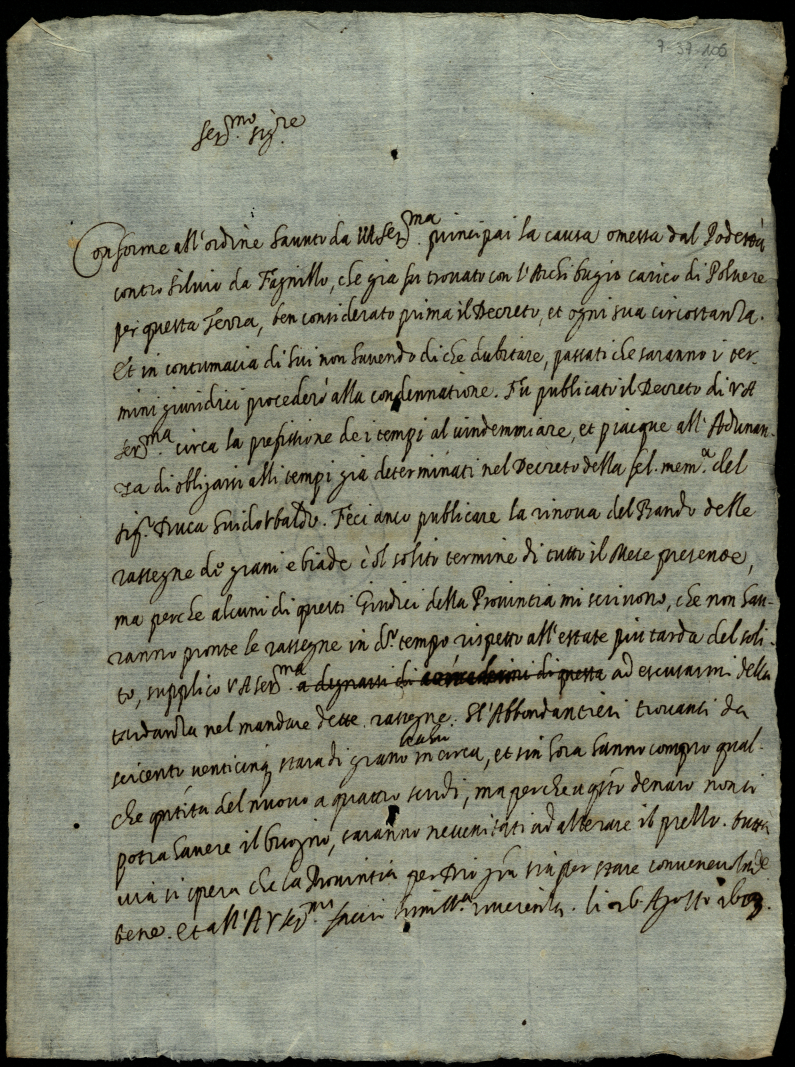 7-37-106
Ser.mo Sig.re
Conforme all'ordine havuto da V A Ser.ma principai la causa omessa dal Podestà
contro Silvio da Fagnillo, che già fu trovato con l'Archibugio carico di Polvere
per questa Terra, ben considerato prima il Decreto, et ogni sua circostanza.
Et in contumacia di lui non havendo di che dubitare, passati che saranno i ter-
mini giuridici procederò alla condennatione. Fu publicato il Decreto di V A
Ser.ma circa la prefissione dei tempi al vindemmiare, et piacque all'Adunan-
za di obligarsi alli tempi già determinati nel Decreto della fel. mem.a del
Sig.r Duca Guidobaldo. Feci anco publicare la rinova del Bando delle
rassegne de grani e biade col solito termine di tutto il Mese presente,
ma perche alcuni di questi Giudici della Provintia mi scrivono, che non han-
ranno pronte le rassegne in d.o tempo rispetto all'estate più tarda del soli-
to, supplico V A Ser.ma a degnarsi di di questa ad escusarmi della
tardanza nel mandare dette rassegne. Gl'Abbondantieri trovansi da
seicento venticinq stara di grano in circa, et sin hora hanno compro qual-
che q.ntità del nuovo a quattro scudi, ma perche a q.sto denaro non si
potrà havere il bisogno, saranno necessitati ad alterare il prezzo. tutta
via si spera che la Provintia per Dio gra sia per stare convenevolm.te
bene. et all'A V Ser.ma faccio humiliss.a riverenza. li 26 Agosto 1603.